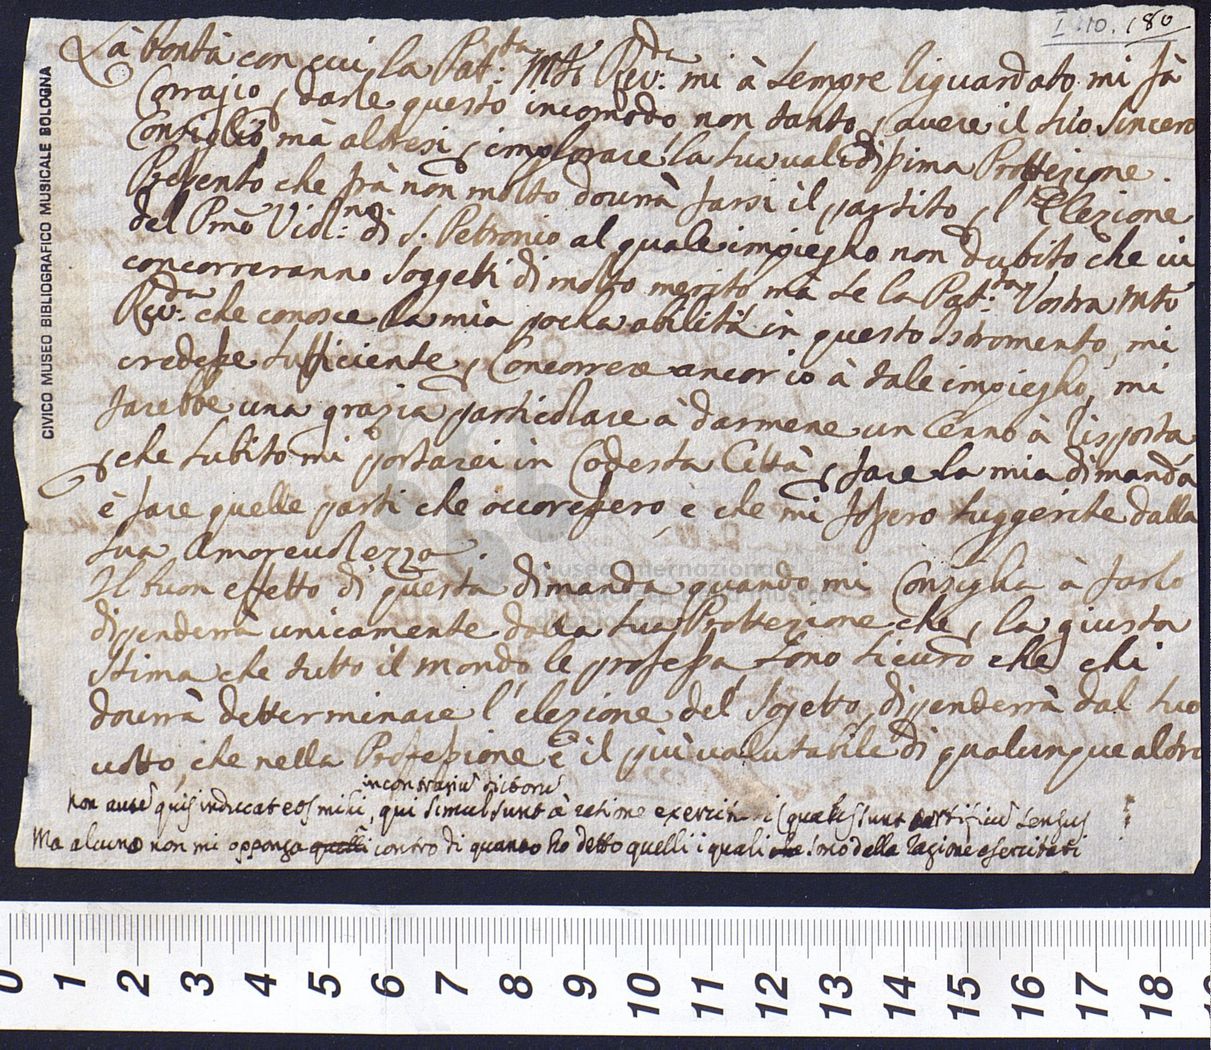 I. 10. 180
La bontà con cui la Pat.tà Mto Rev.da mi à sempre riguardato mi fà
Corragio p darle questo incomodo non tanto p avere il suo sincero
Consiglio mà altresi p implorare la sua valedissima Prottezione.
Presento che frà non molto dovrà farsi il partito p l'Elezione
del Pmo Viol.no di S. Petronio al quale impiegho non dubito che vi
concorreranno soggeti di molto merito mà se la Pat.tà Vostra Mto
Rev.da che conosce la mia pocha abilità in questo istromento, mi
credesse sufficiente p Concorrere ancor io à tale impiegho, mi
farebbe una grazia particolare à darmene un Cenno à risposta
p che subito mi portarei in Codesta Città p fare la mia dimanda
è fare quelle parti che occoressero, è che mi fossero suggerite dalla
sua Amorevolezza
Il buon effetto di questa dimanda quando mi Consiglia à farlo
dipenderrà unicamente dalla sua Prottezione che p la giusta
stima che tutto il mondo le professa, sono sicuro che chi
dovrà detterminare l'elezione del Sogetto, dipenderrà dal suo
votto, che nella Professione è il più valutabile di qualunque altro
incontrarium
non autē quis inducat eos mihi, qui simul sunt à ratione exercit ti (quales sunt artificū sensus
Ma alcuno non mi opponga quelli contro di quanto ho detto quelli i quali che sono della ragione esercitati
CIVICO MUSEO BIBLIOGRAFICO MUSICALE BOLOGNA
museo internazionale
0 1 2 3 4 5 6 7 8 9 10 11 12 13 14 15 16 17 18